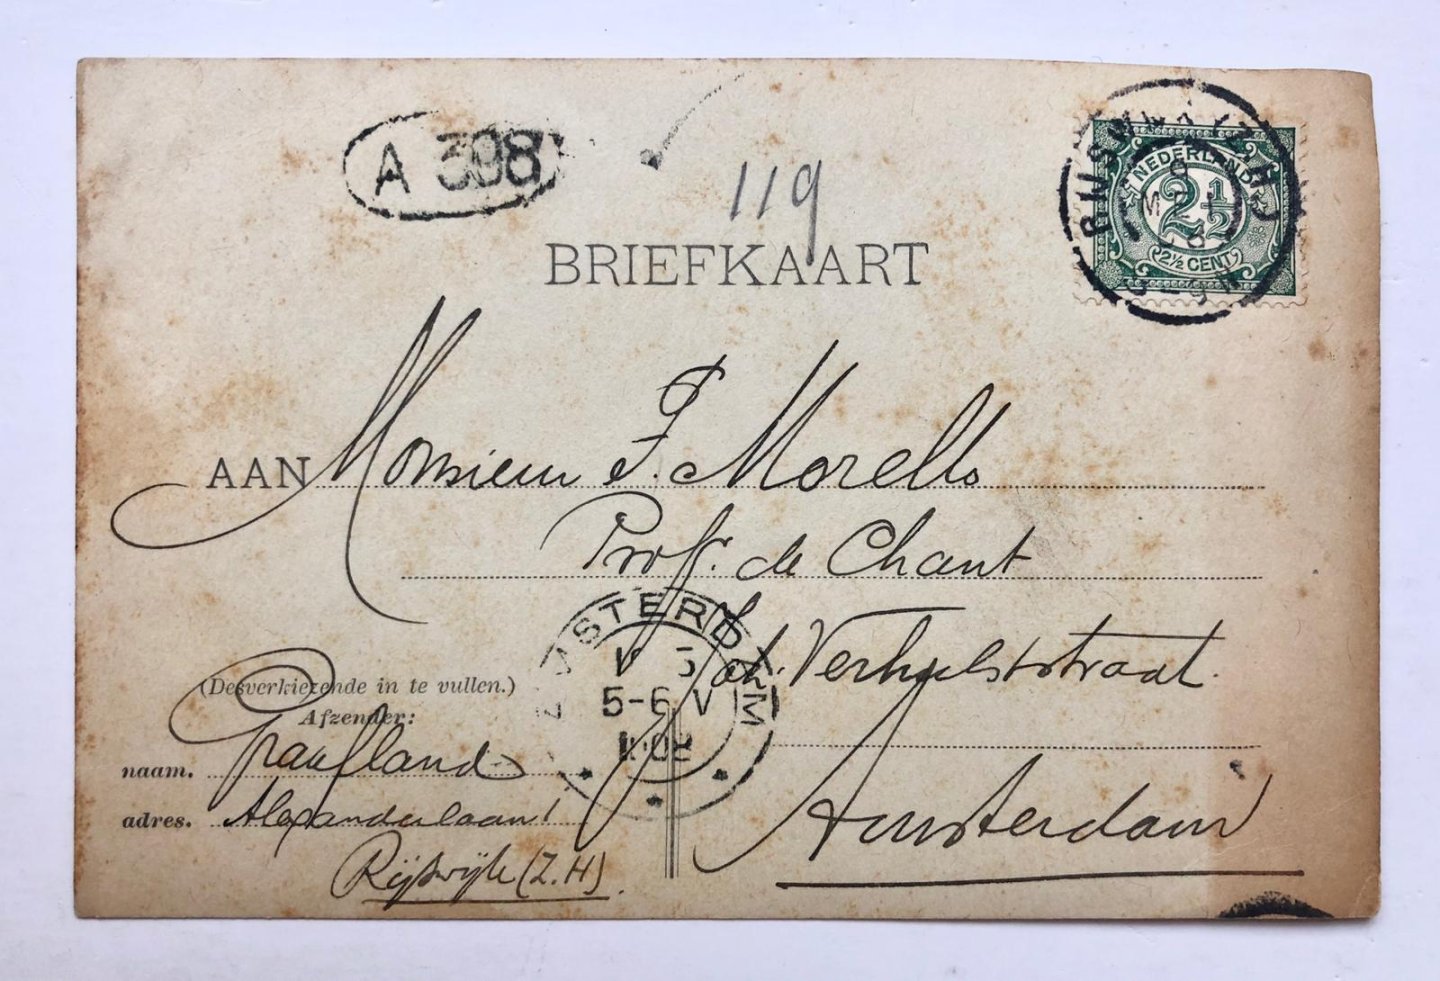 A 398
119
NEDERLAND
2½
2½ CENT
BRIEFKAART
AAN Monsieur F. Morello
Prof. de Chant
Joh. Verhulststraat.
Amsterdam
AMSTERDAM
5-6 V
(Deszverkiezende in te vullen.)
Afzender:
naam. Graafland
adres. Alexanderlaan 1
Rijswijk (Z.H).